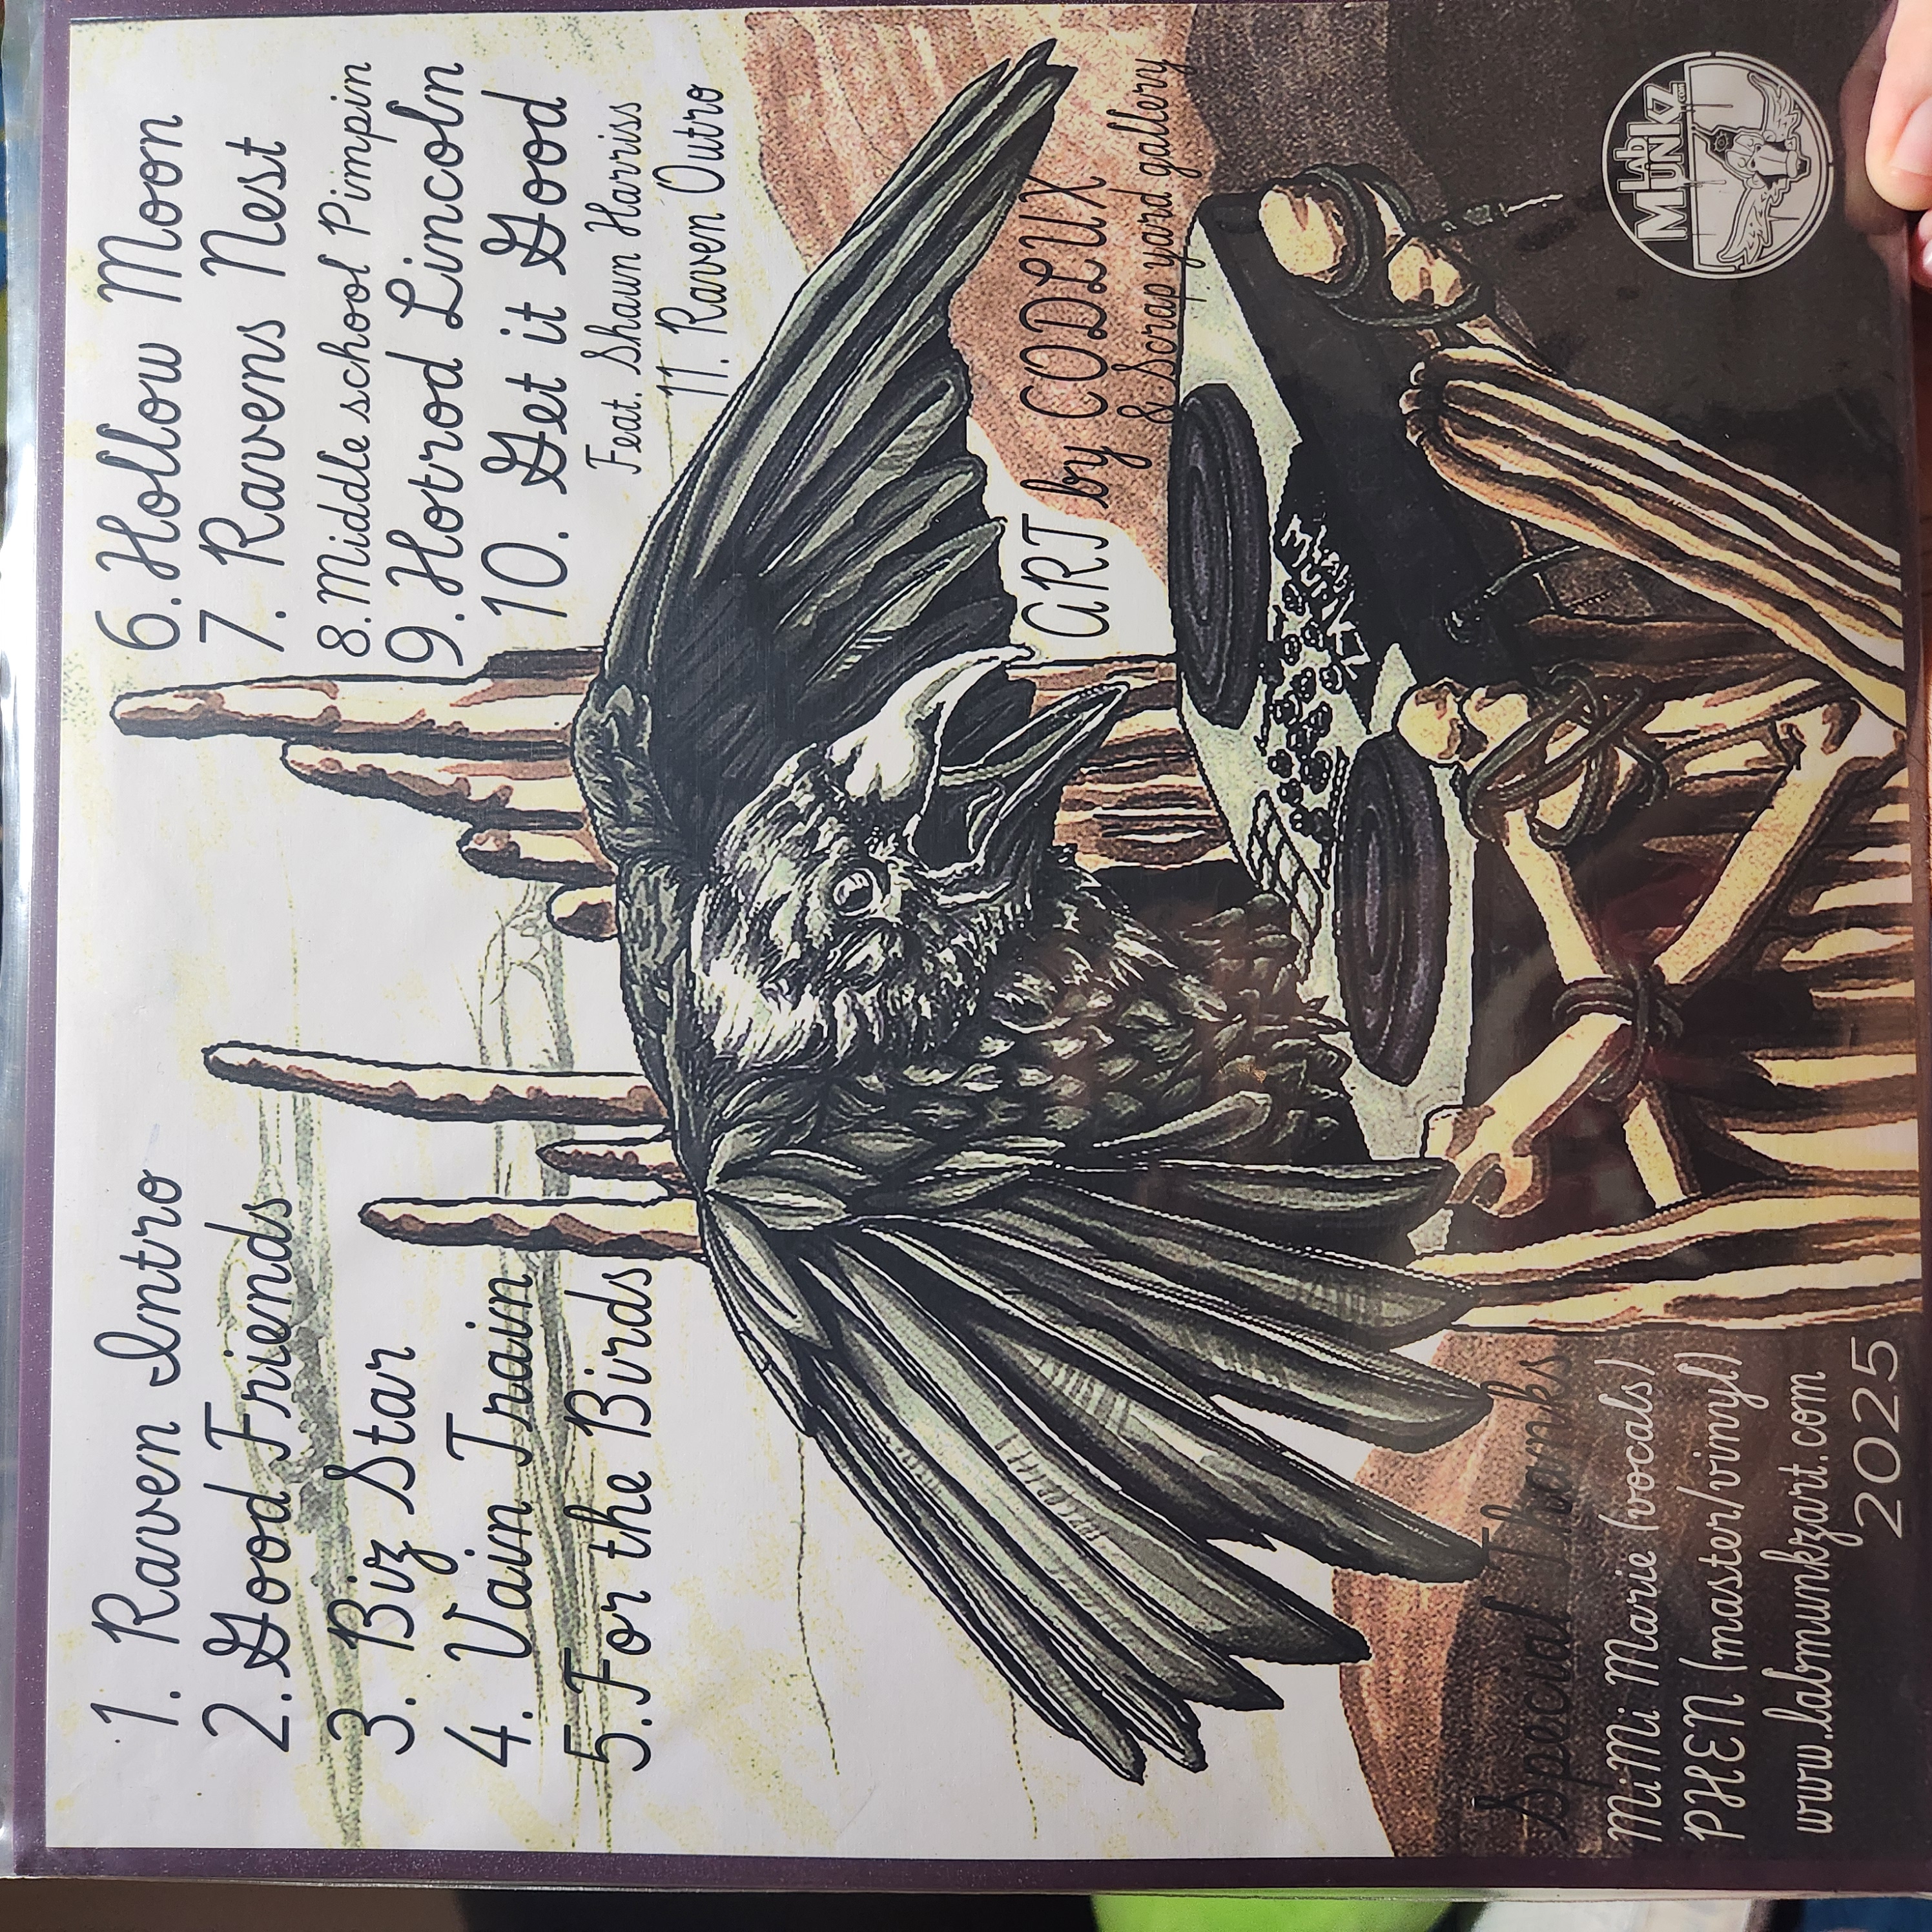 1. Raven Intro
2. Good Friends
3. Biz Star
4. Vain Train
5. For the Birds
6. Hollow Moon
7. Ravens Nest
8. Middle school Pimpin
9. Hotrod Lincoln
10. Get it Good
Feat. Shawn Harriss
11. Raven Outro
ART by CODLUX
& Scrap yard gallery
MUNKZ
Special Thanks
MiMi Marie (vocals)
PHEN (master/vinyl)
www.labmunkzart.com
2025
LAB
MUNKZ